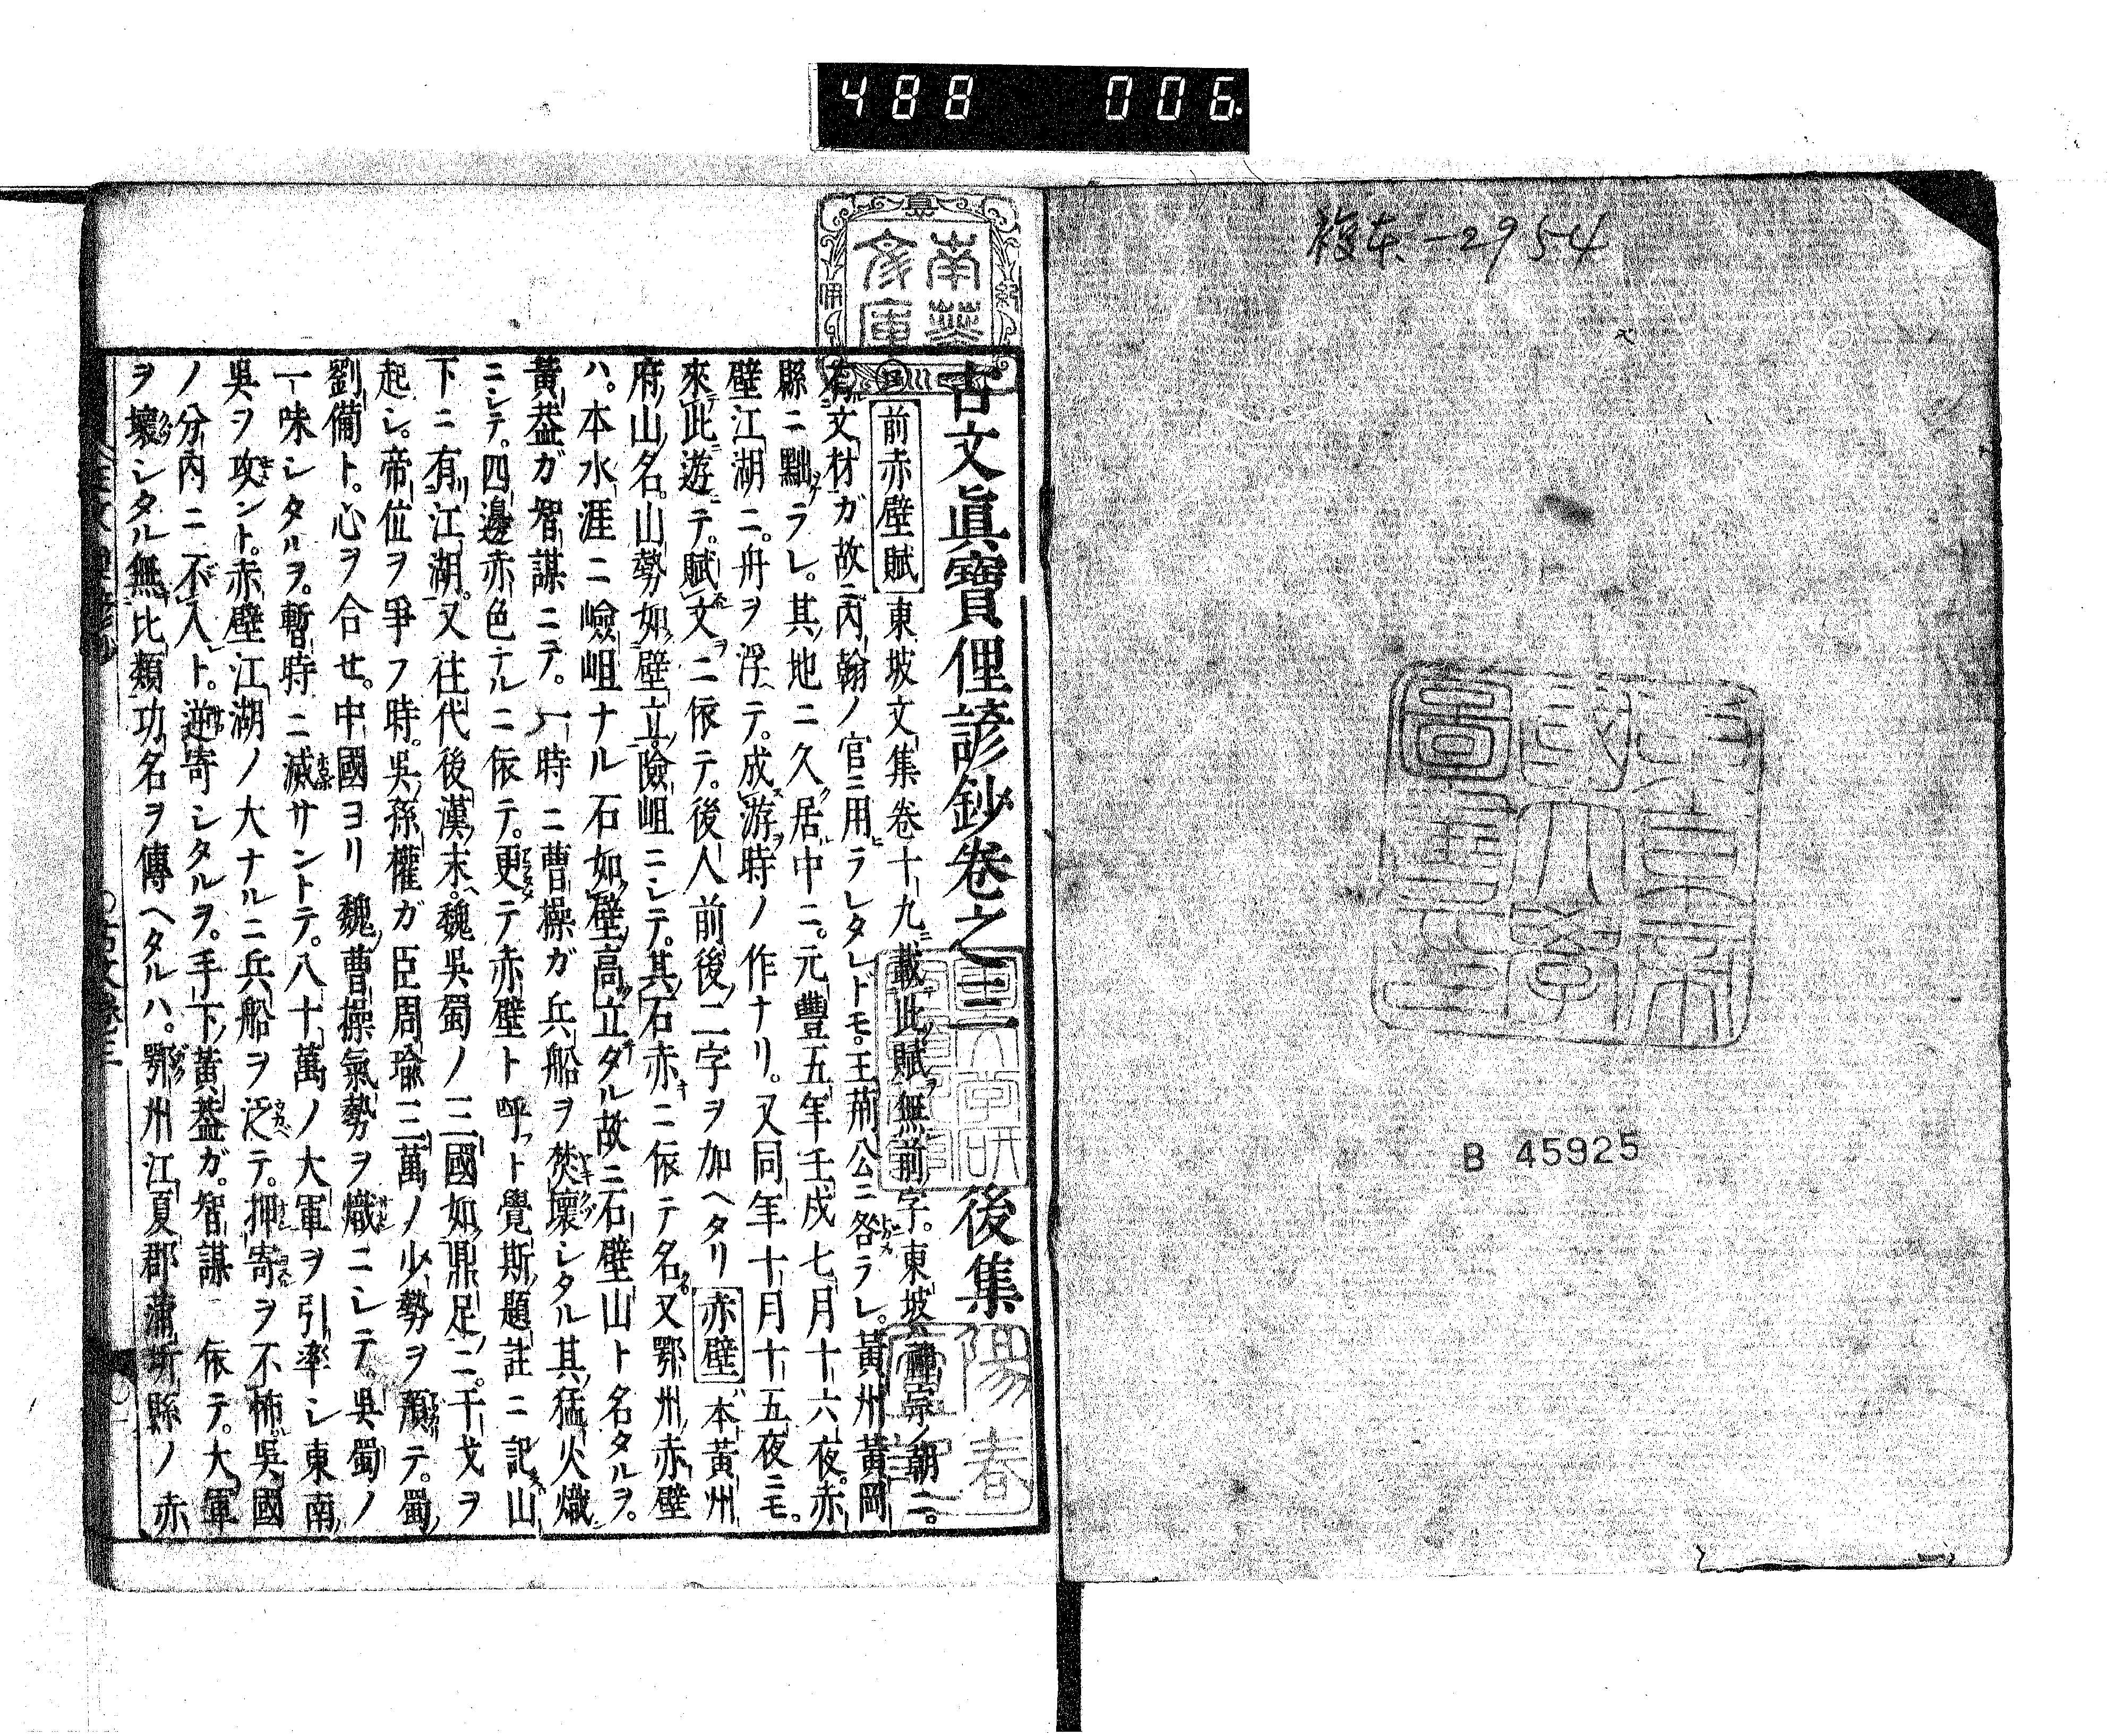 488 006.
複本-2954
東京帝國大學圖書印
B 45925
南葵文庫
古文眞寶俚諺鈔卷之三 後集
前赤壁賦 東坡文集卷十九ニ載此賦ヲ無前字。東坡神宗ノ朝ニ。
有文材ガ故ニ內翰ノ官ニ用ラレタレドモ。王荊公ニ咎ラレ。黃州黃岡
縣ニ黜ラレ。其地ニ久ク居ル中ニ。元豐五年壬戌七月十六夜。赤
壁江湖ニ。舟ヲ浮ヘテ。成ス游ヲ時ノ作ナリ。又同年十月十五夜ニモ。
來此遊ニテ。賦ス文ヲニ依テ。後人前後ノ二字ヲ加ヘタリ 赤壁 本黃州
府ノ山ノ名。山勢如壁立。險岨ニシテ。其石赤キニ依テ名ク。又鄂州ノ赤壁
ハ。本水涯ニ嶮岨ナル石如壁高立タル故ニ石壁山ト名タルヲ。
黃蓋ガ智謀ニテ。一時ニ曹操ガ兵船ヲ焚壞シタル其猛火熾
ニシテ。四邊赤色ナルニ依テ。更テ赤壁ト呼フト覺斯ノ題註ニ記ス山
下ニ有リ江湖。又往代後漢ノ末ヘ。魏吳蜀ノ三國如鼎足ノニ。干戈ヲ
起シ。帝位ヲ爭フ時。吳ノ孫權ガ臣周瑜三萬ノ少勢ヲ頼テ。蜀ノ
劉備ト。心ヲ合セ。中國ヨリ魏ノ曹操氣勢ヲ熾ニシテ。吳蜀ノ
一味シタルヲ。暫時ニ滅サントテ。八十萬ノ大軍ヲ引率シ東南ノ
吳ヲ攻ント。赤壁江湖ノ大ナルニ兵船ヲ泛テ。押寄ヲ不怖。吳國
ノ分內ニ不入ト。逆寄シタルヲ。手下ノ黃蓋ガ。智謀 依テ。大軍
ヲ壞シタル無比類功名ヲ傳ヘタルハ。鄂州江夏郡蒲圻縣ノ赤